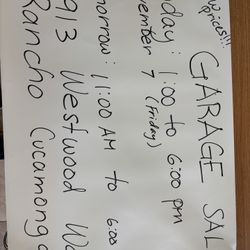 prices!!!
GARAGE SAL
day: 1:00 to 6:00 pm
vember 7 (Friday)
morrow: 11:00 AM to 6:00
913 Westwood Wa
Rancho Cucamong